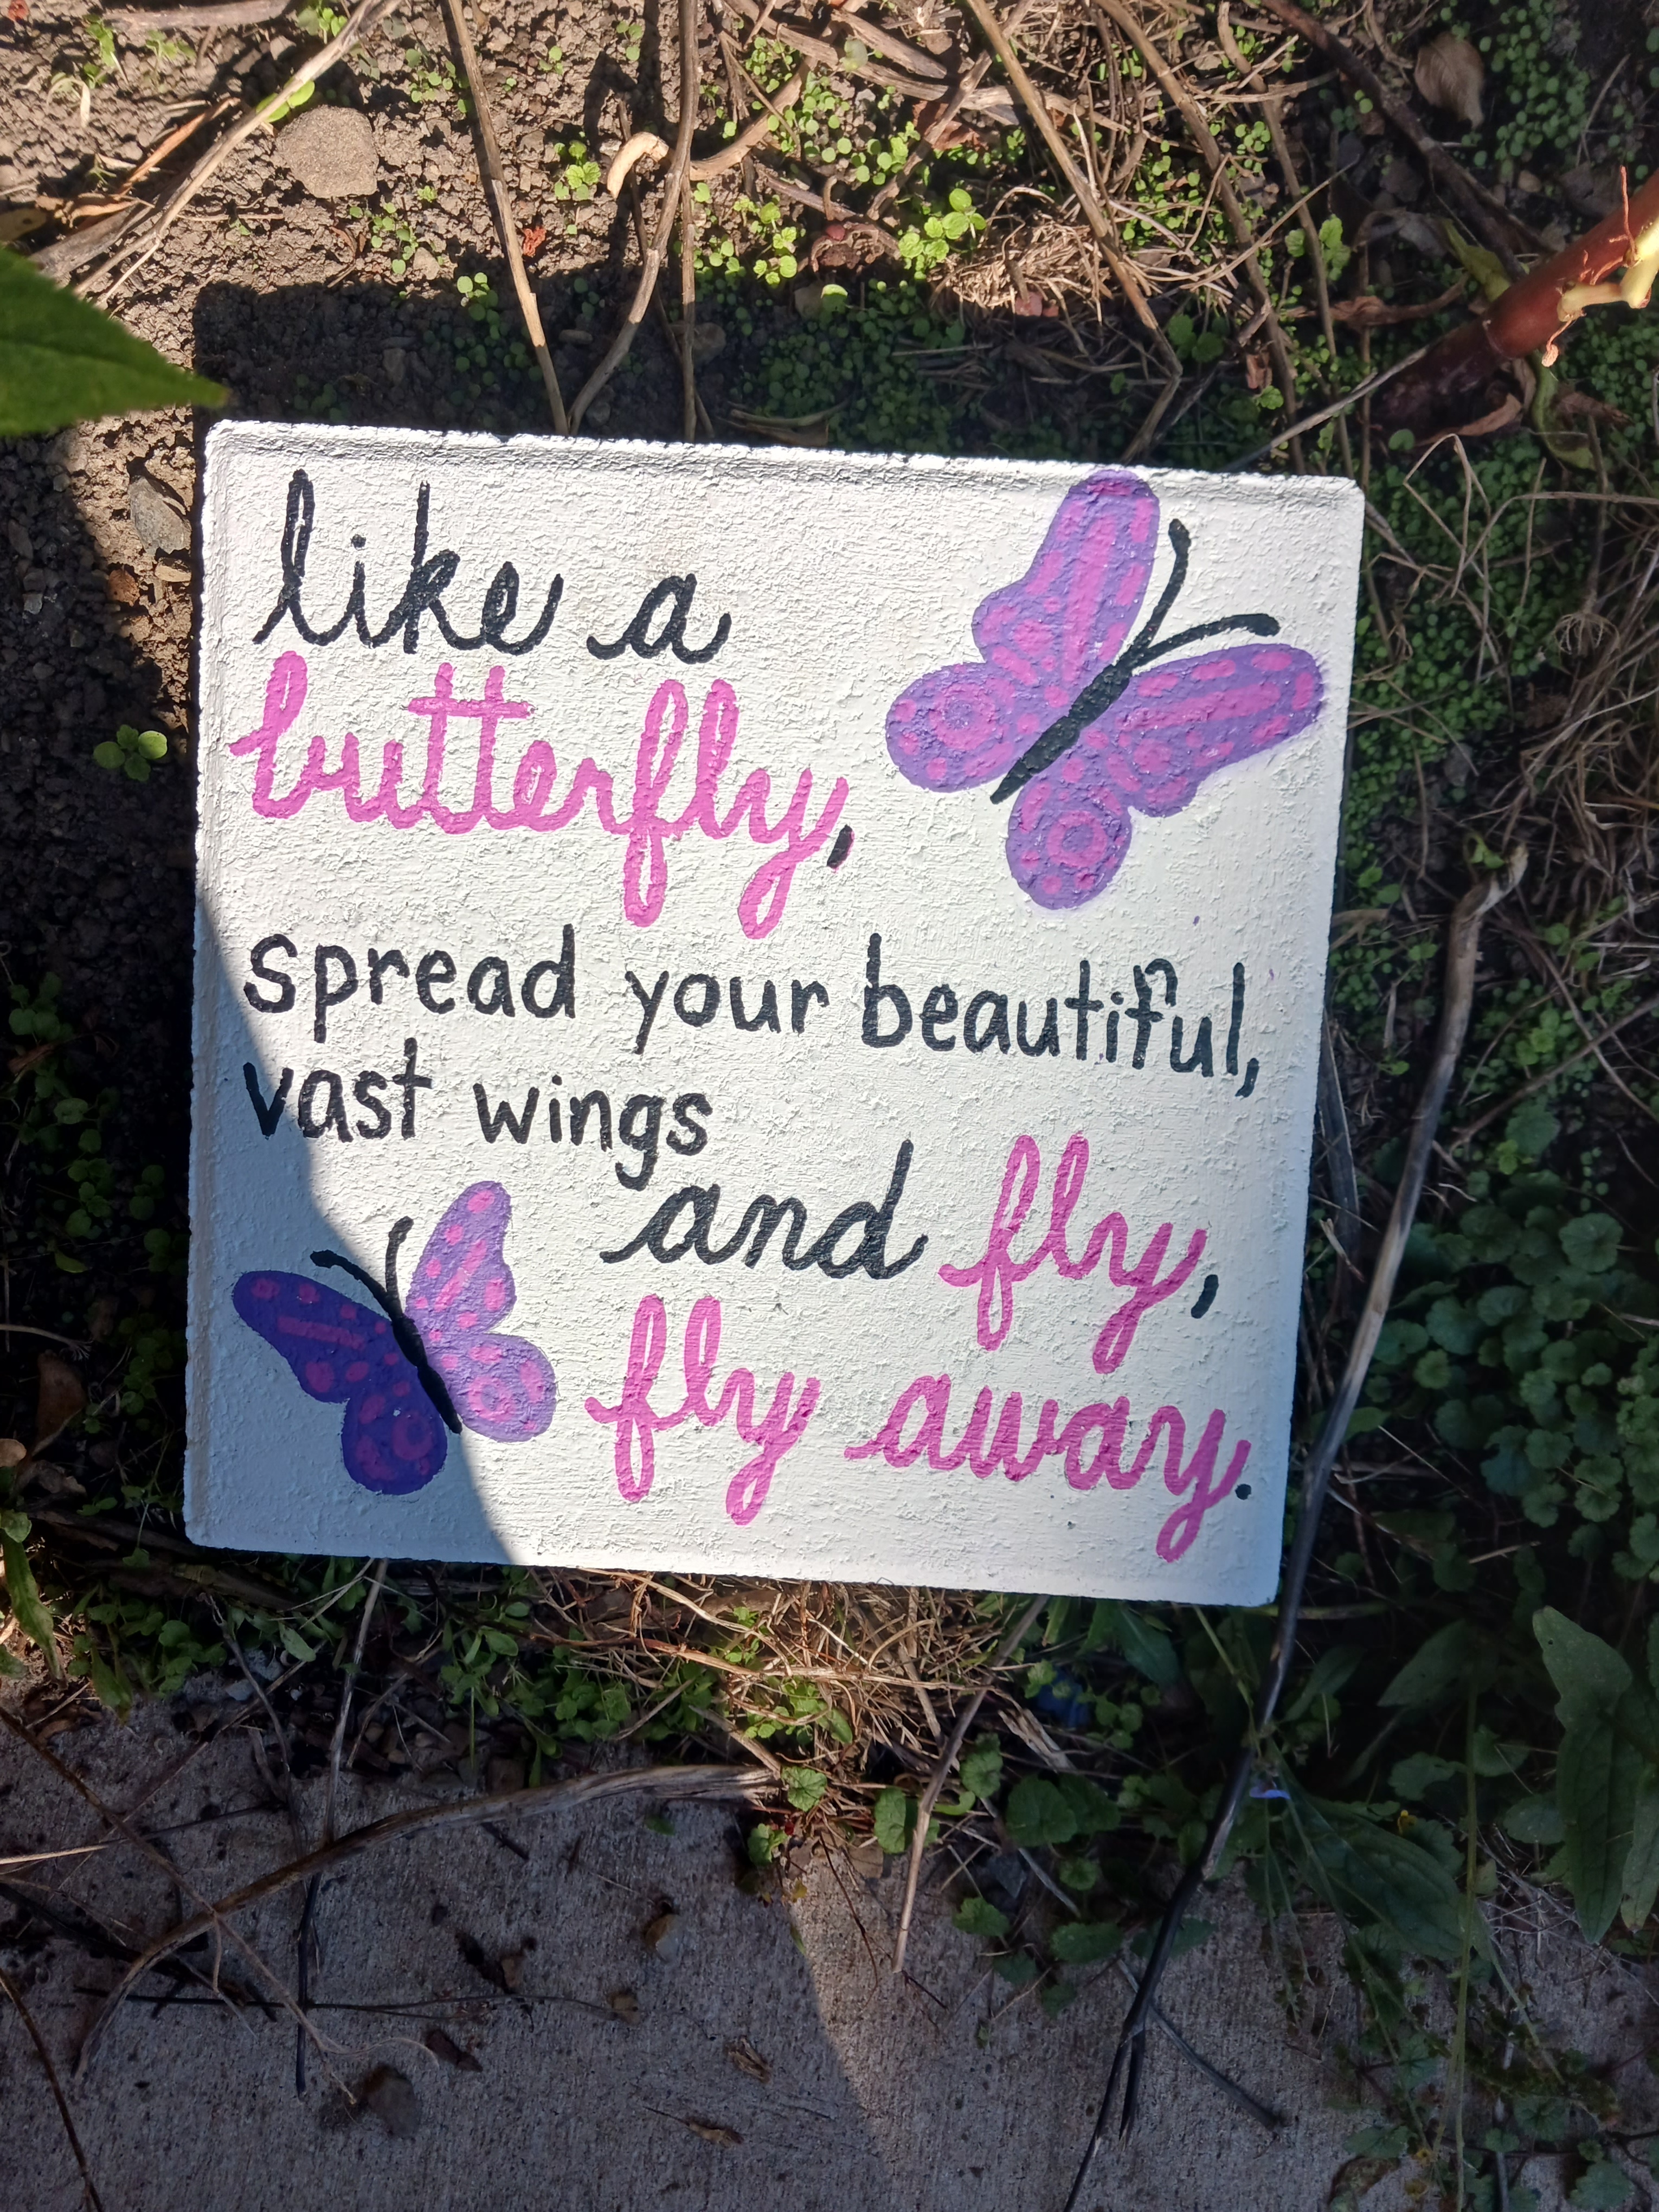 like a
butterfly,
spread your beautiful,
vast wings
and fly,
fly away.